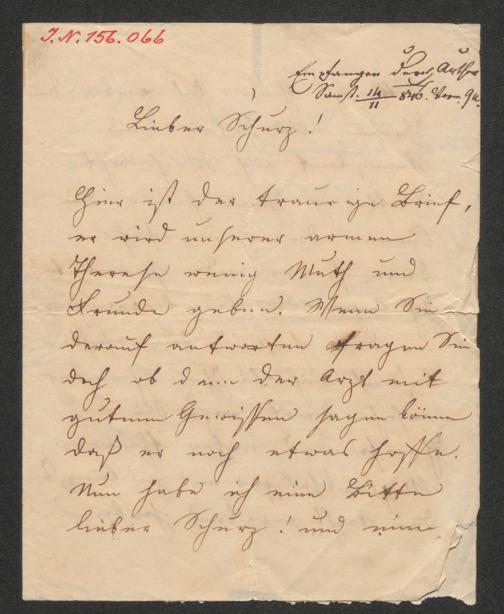 J.N. 156.066
Empfangen durch Arthur
Samst. 14/11 846. Vorm. 9 U.
Lieber Schurz!
Hier ist der traurige Brief,
er wird unserer armen
Therese wenig Muth und
Freude geben. Wenn Sie
darauf antworten fragen Sie
doch ob denn der Arzt mit
gutem Gewissen sagen könne
daß er noch etwas hoffe.
Nun habe ich eine Bitte
lieber Schurz! und eine